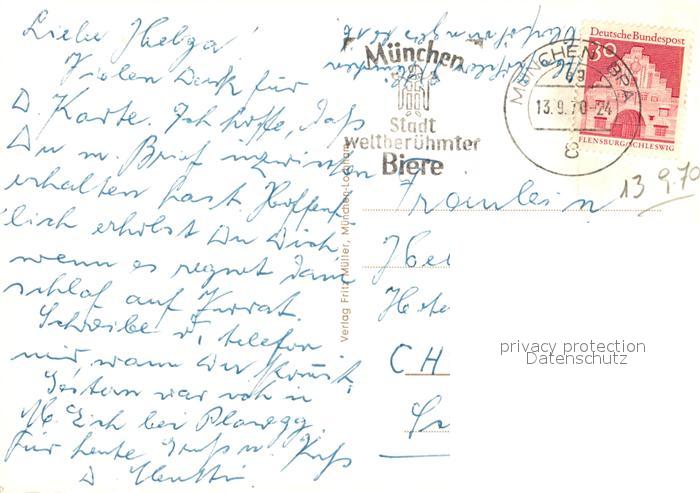 Liebe Helga!
Vielen Dank für
D. Karte. Ich hoffe, daß
Du m. Brief inzwischen
erhalten hast. Hoffent-
lich erholst Du Dich,
wenn es regnet dann
schlaf auf Vorrat.
Schreibe od. telefon
mir wann Du kommst,
Gestern war ich in
M. Eich bei Planegg.
Für heute Gruß u. Kuß
D.
München
Stadt
weltberühmter
Biere
MÜNCHEN BPA
13.9.70-24
8
Deutsche Bundespost
30
FLENSBURG/SCHLESWIG
13 9.70
Verlag Fritz Müller, München-Lochham
Fräulein
Hel
Hote
CH
privacy protection
Datenschutz